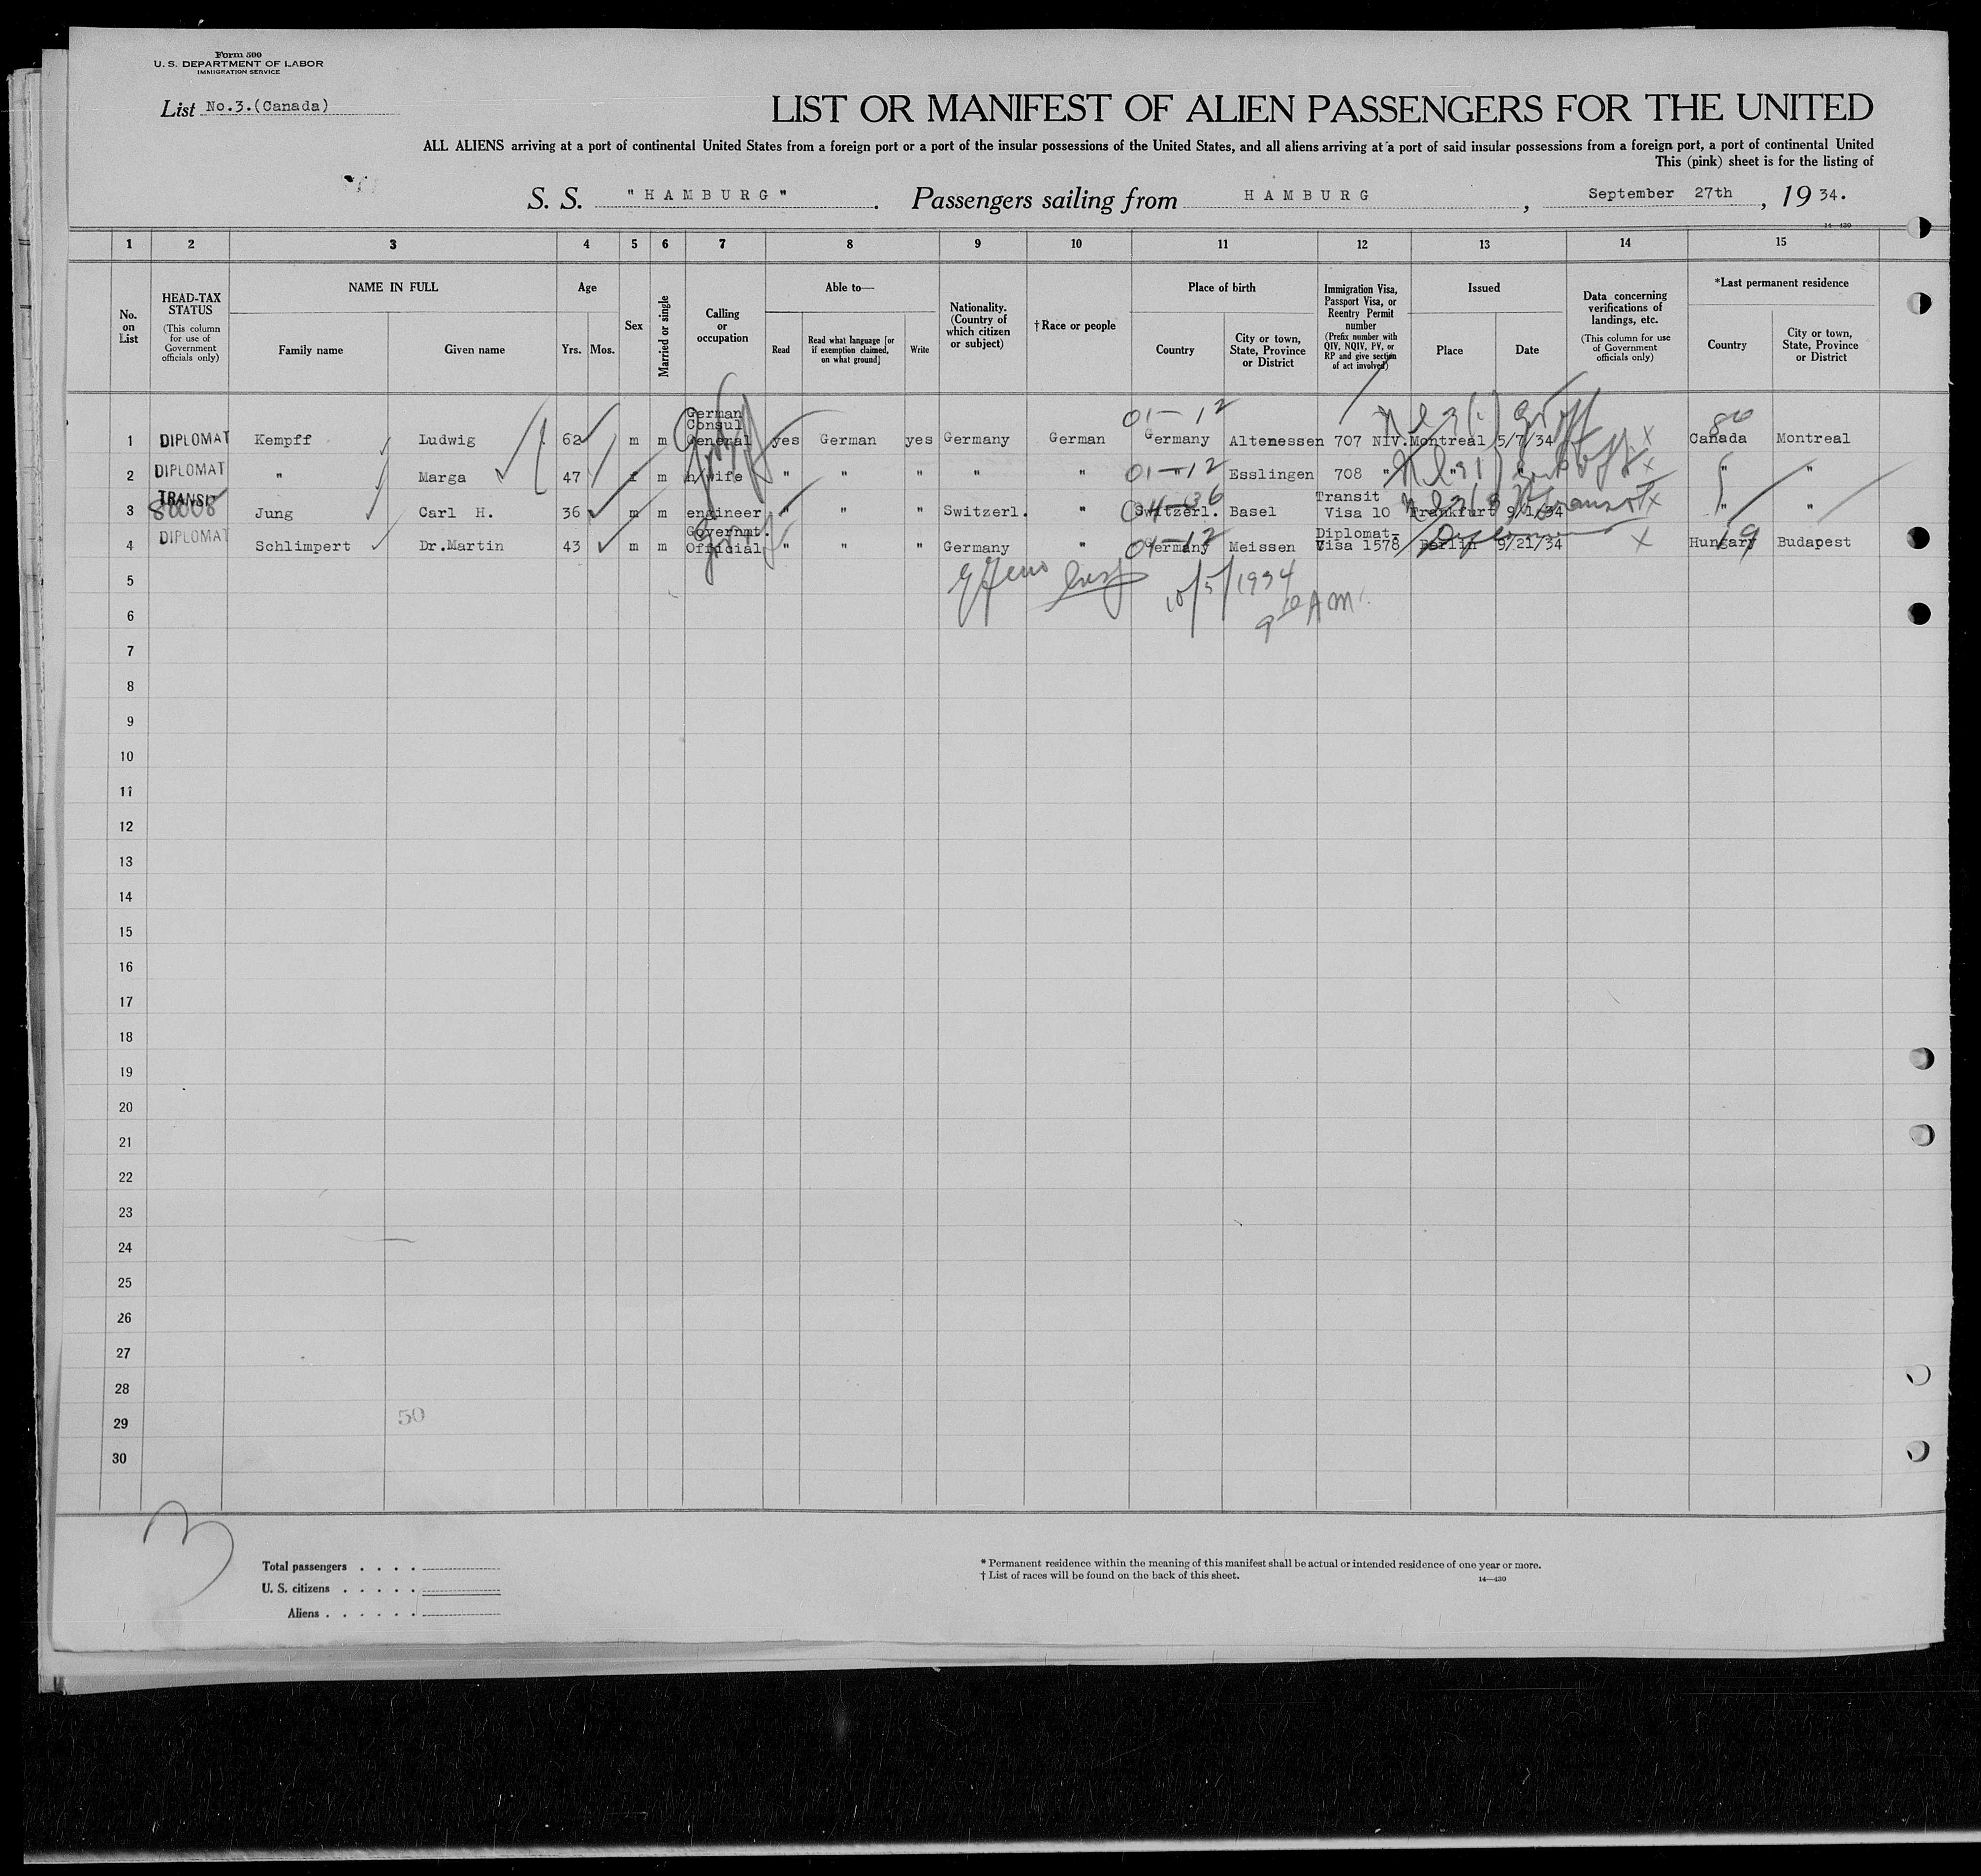 Form 500
U. S. DEPARTMENT OF LABOR
IMMIGRATION SERVICE
List No.3.(Canada)
LIST OR MANIFEST OF ALIEN PASSENGERS FOR THE UNITED
ALL ALIENS arriving at a port of continental United States from a foreign port or a port of the insular possessions of the United States, and all aliens arriving at a port of said insular possessions from a foreign port, a port of continental United
This (pink) sheet is for the listing of
S. S. "HAMBURG". Passengers sailing from HAMBURG, September 27th, 1934.
14—430
1 2 3 4 5 6 7 8 9 10 11 12 13 14 15
No. on List
HEAD-TAX STATUS
(This column for use of Government officials only)
NAME IN FULL
Family name Given name
Age
Yrs. Mos.
Sex
Married or single
Calling or occupation
Able to—
Read
Read what language [or if exemption claimed, on what ground]
Write
Nationality. (Country of which citizen or subject)
†Race or people
Place of birth
Country
City or town, State, Province or District
Immigration Visa, Passport Visa, or Reentry Permit number
(Prefix number with QIV, NQIV, PV, or RP and give section of act involved)
Issued
Place Date
Data concerning verifications of landings, etc.
(This column for use of Government officials only)
*Last permanent residence
Country
City or town, State, Province or District
01-12 80
1 DIPLOMAT Kempff Ludwig 62 m m German Consul General yes German yes Germany German Germany Altenessen 707 NIV. Montreal 5/7/34 X Canada Montreal
01-12
2 DIPLOMAT " Marga 47 f m h/wife " " " " " " Esslingen 708 " " " X " "
04-36
3 TRANSIT Jung Carl H. 36 m m engineer " " " Switzerl. " Switzerl. Basel Transit Visa 10 Frankfurt 9/1/34 Transit X " "
04-12 19
4 DIPLOMAT Schlimpert Dr.Martin 43 m m Governmt. Official " " " Germany " Germany Meissen Diplomat-Visa 1578 Berlin 9/21/34 X Hungary Budapest
5
10/5/1934
6
AM
7
8
9
10
11
12
13
14
15
16
17
18
19
20
21
22
23
24
25
26
27
28
29
50
30
3
Total passengers . . . .
U. S. citizens . . . . .
Aliens . . . . . .
* Permanent residence within the meaning of this manifest shall be actual or intended residence of one year or more.
† List of races will be found on the back of this sheet.
14—430